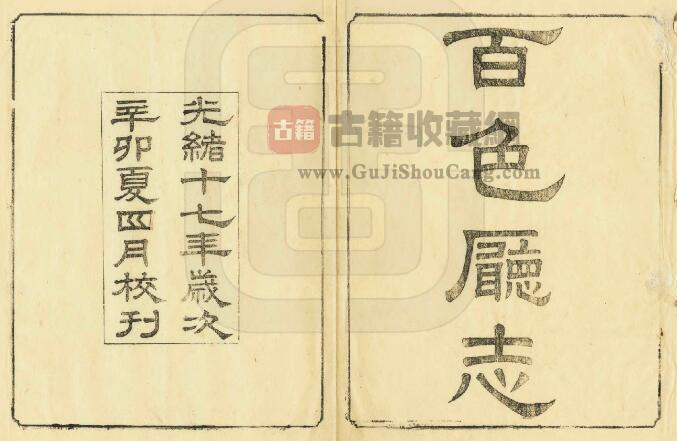 百色廳志
光緒十七年歲次
辛卯夏四月校刊
古籍
古籍收藏網
www.GuJiShouCang.com